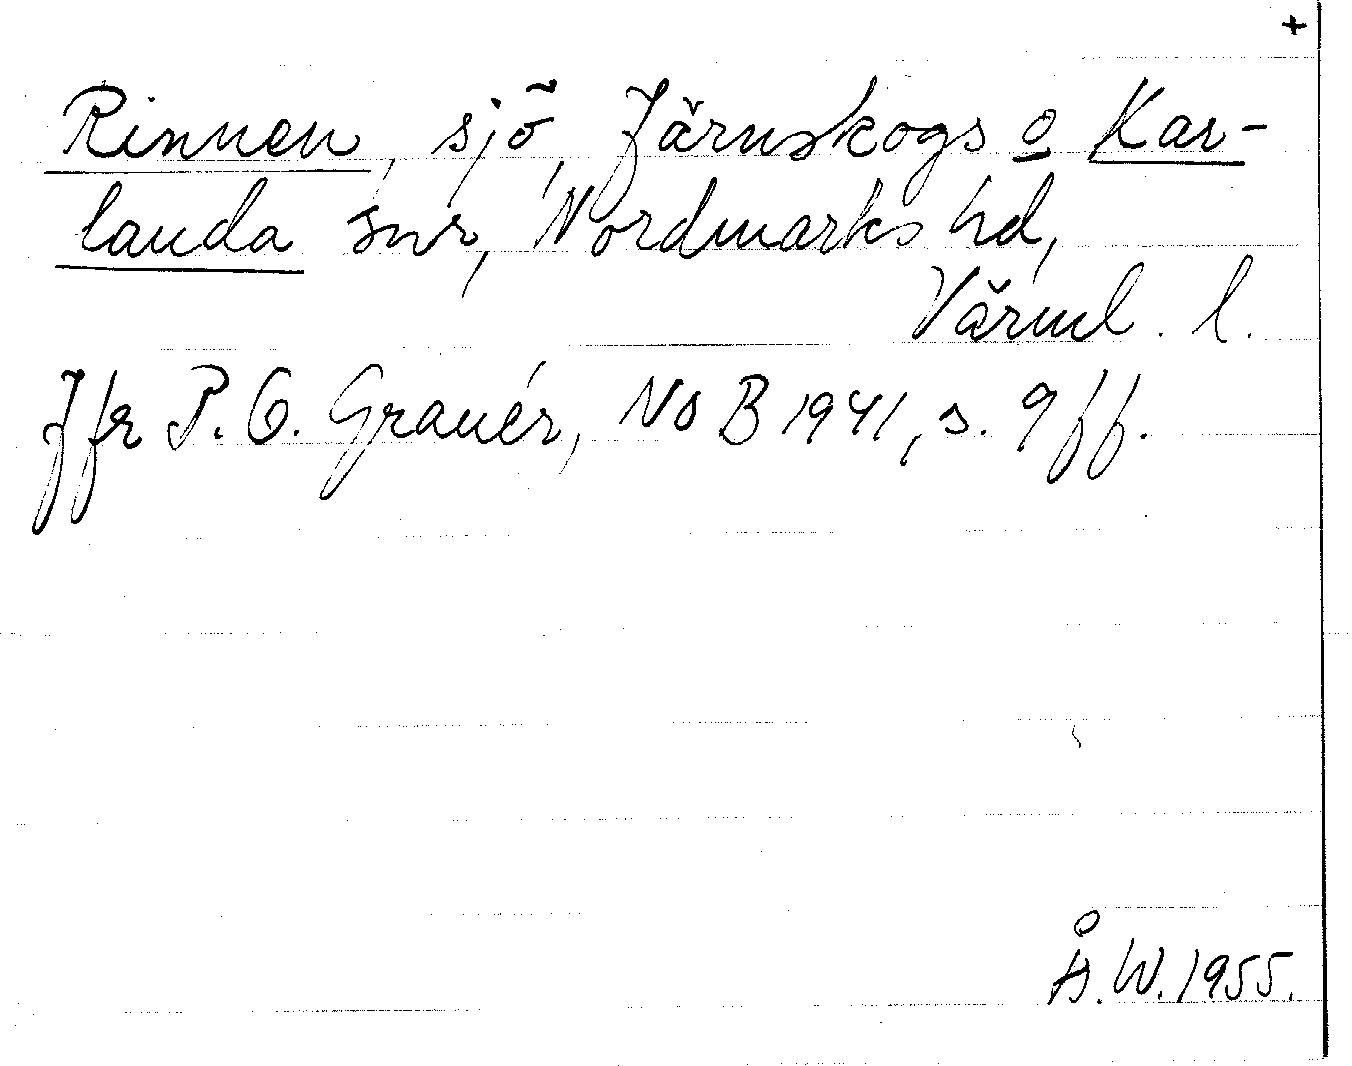 +
Rinnen, sjö, Järnskogs o Kar-
landa snr, Nordmarks hd,
Värml. l.
Jfr P. G. Granér, NoB 1941, s. 9 ff.
Å. W. 1955.